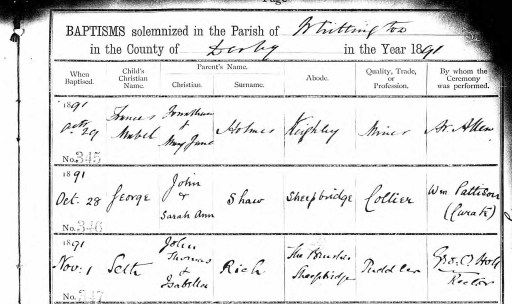 Page
BAPTISMS solemnized in the Parish of Whittington
in the County of Derby in the Year 1891
When Baptised. Child's Christian Name. Parent's Name. Christian. Surname. Abode. Quality, Trade, or Profession. By whom the Ceremony was performed.
1891
Oct. 29 Frances Mabel Jonathan & Mary Jane Holmes Keighley Miner
No. 345
1891
Oct. 28 George John & Sarah Ann Shaw Sheepbridge Collier Wm Pattison (Curate)
No. 346
1891
Nov. 1 Seth John Thomas & Isabella Rich The Brushes Sheepbridge Puddler Geo. Rector
No. 347